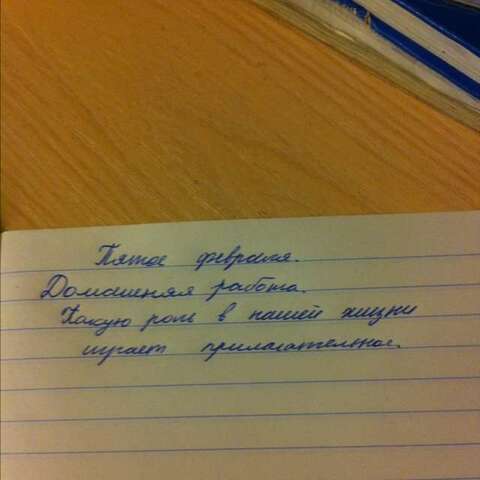 Пятое февраля.
Домашняя работа.
Какую роль в нашей жизни
играет прилагательное.